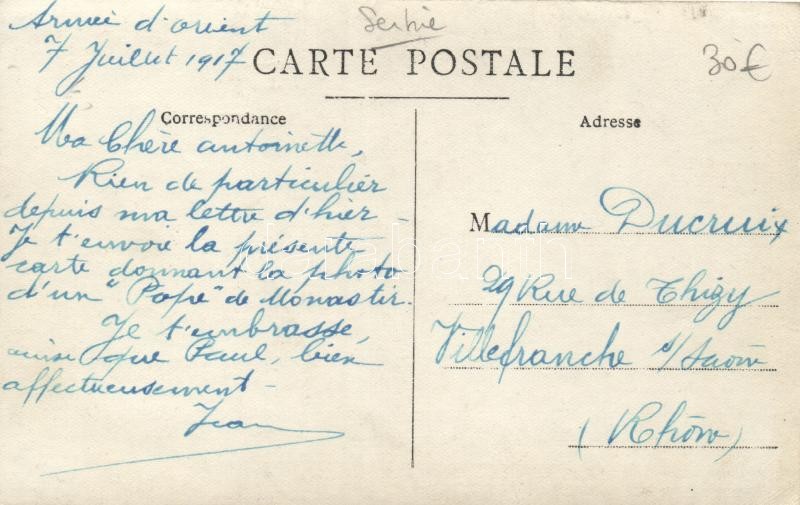 Armée d'orient
7 Juillet 1917
Serbie
30€
CARTE POSTALE
Correspondance
Ma Chère antoinette,
Rien de particulier
depuis ma lettre d'hier -
Je t'envoie la présente
carte donnant la photo
d'un "Pope" de Monastir.
Je t'embrasse,
ainsi que Paul, bien
affectueusement -
Jean
Adresse
Madame Ducruix
29 Rue de Thizy
Villefranche s/Saône
(Rhône)